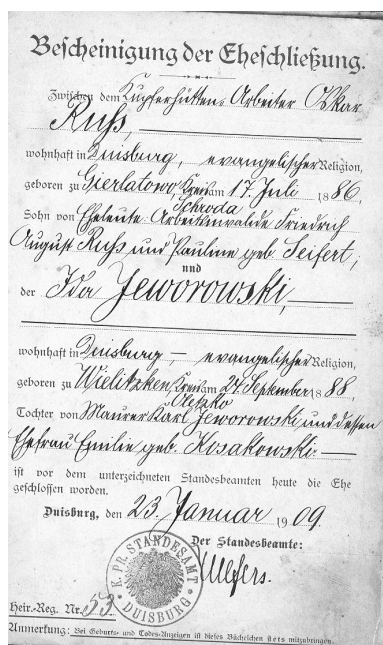 Bescheinigung der Eheschließung.
Zwischen dem Kupferhütten-Arbeiter Oskar
Russ,
wohnhaft in Duisburg, evangelischer Religion,
geboren zu Gierlatowo Kreis am 17. Juli 1886,
Schroda
Sohn von Eheleute: Friedrich
August Russ und Pauline geb. Seifert,
und
der Ida Jeworowski,
wohnhaft in Duisburg – evangelischer Religion,
geboren zu Wielitzken, Kreis am 27. September 1888,
Oletzko
Tochter von Maurer Karl Jeworowski und dessen
Ehefrau Emilie geb. Kosakowski. –
ist vor dem unterzeichneten Standesbeamten heute die Ehe
geschlossen worden.
Duisburg, den 23. Januar 1909.
Der Standesbeamte:
K. PR. STANDESAMT
DUISBURG
Heir.-Reg. Nr. 53
Anmerkung: Bei Geburts- und Todes-Anzeigen ist dieses Büchelchen stets mitzubringen.